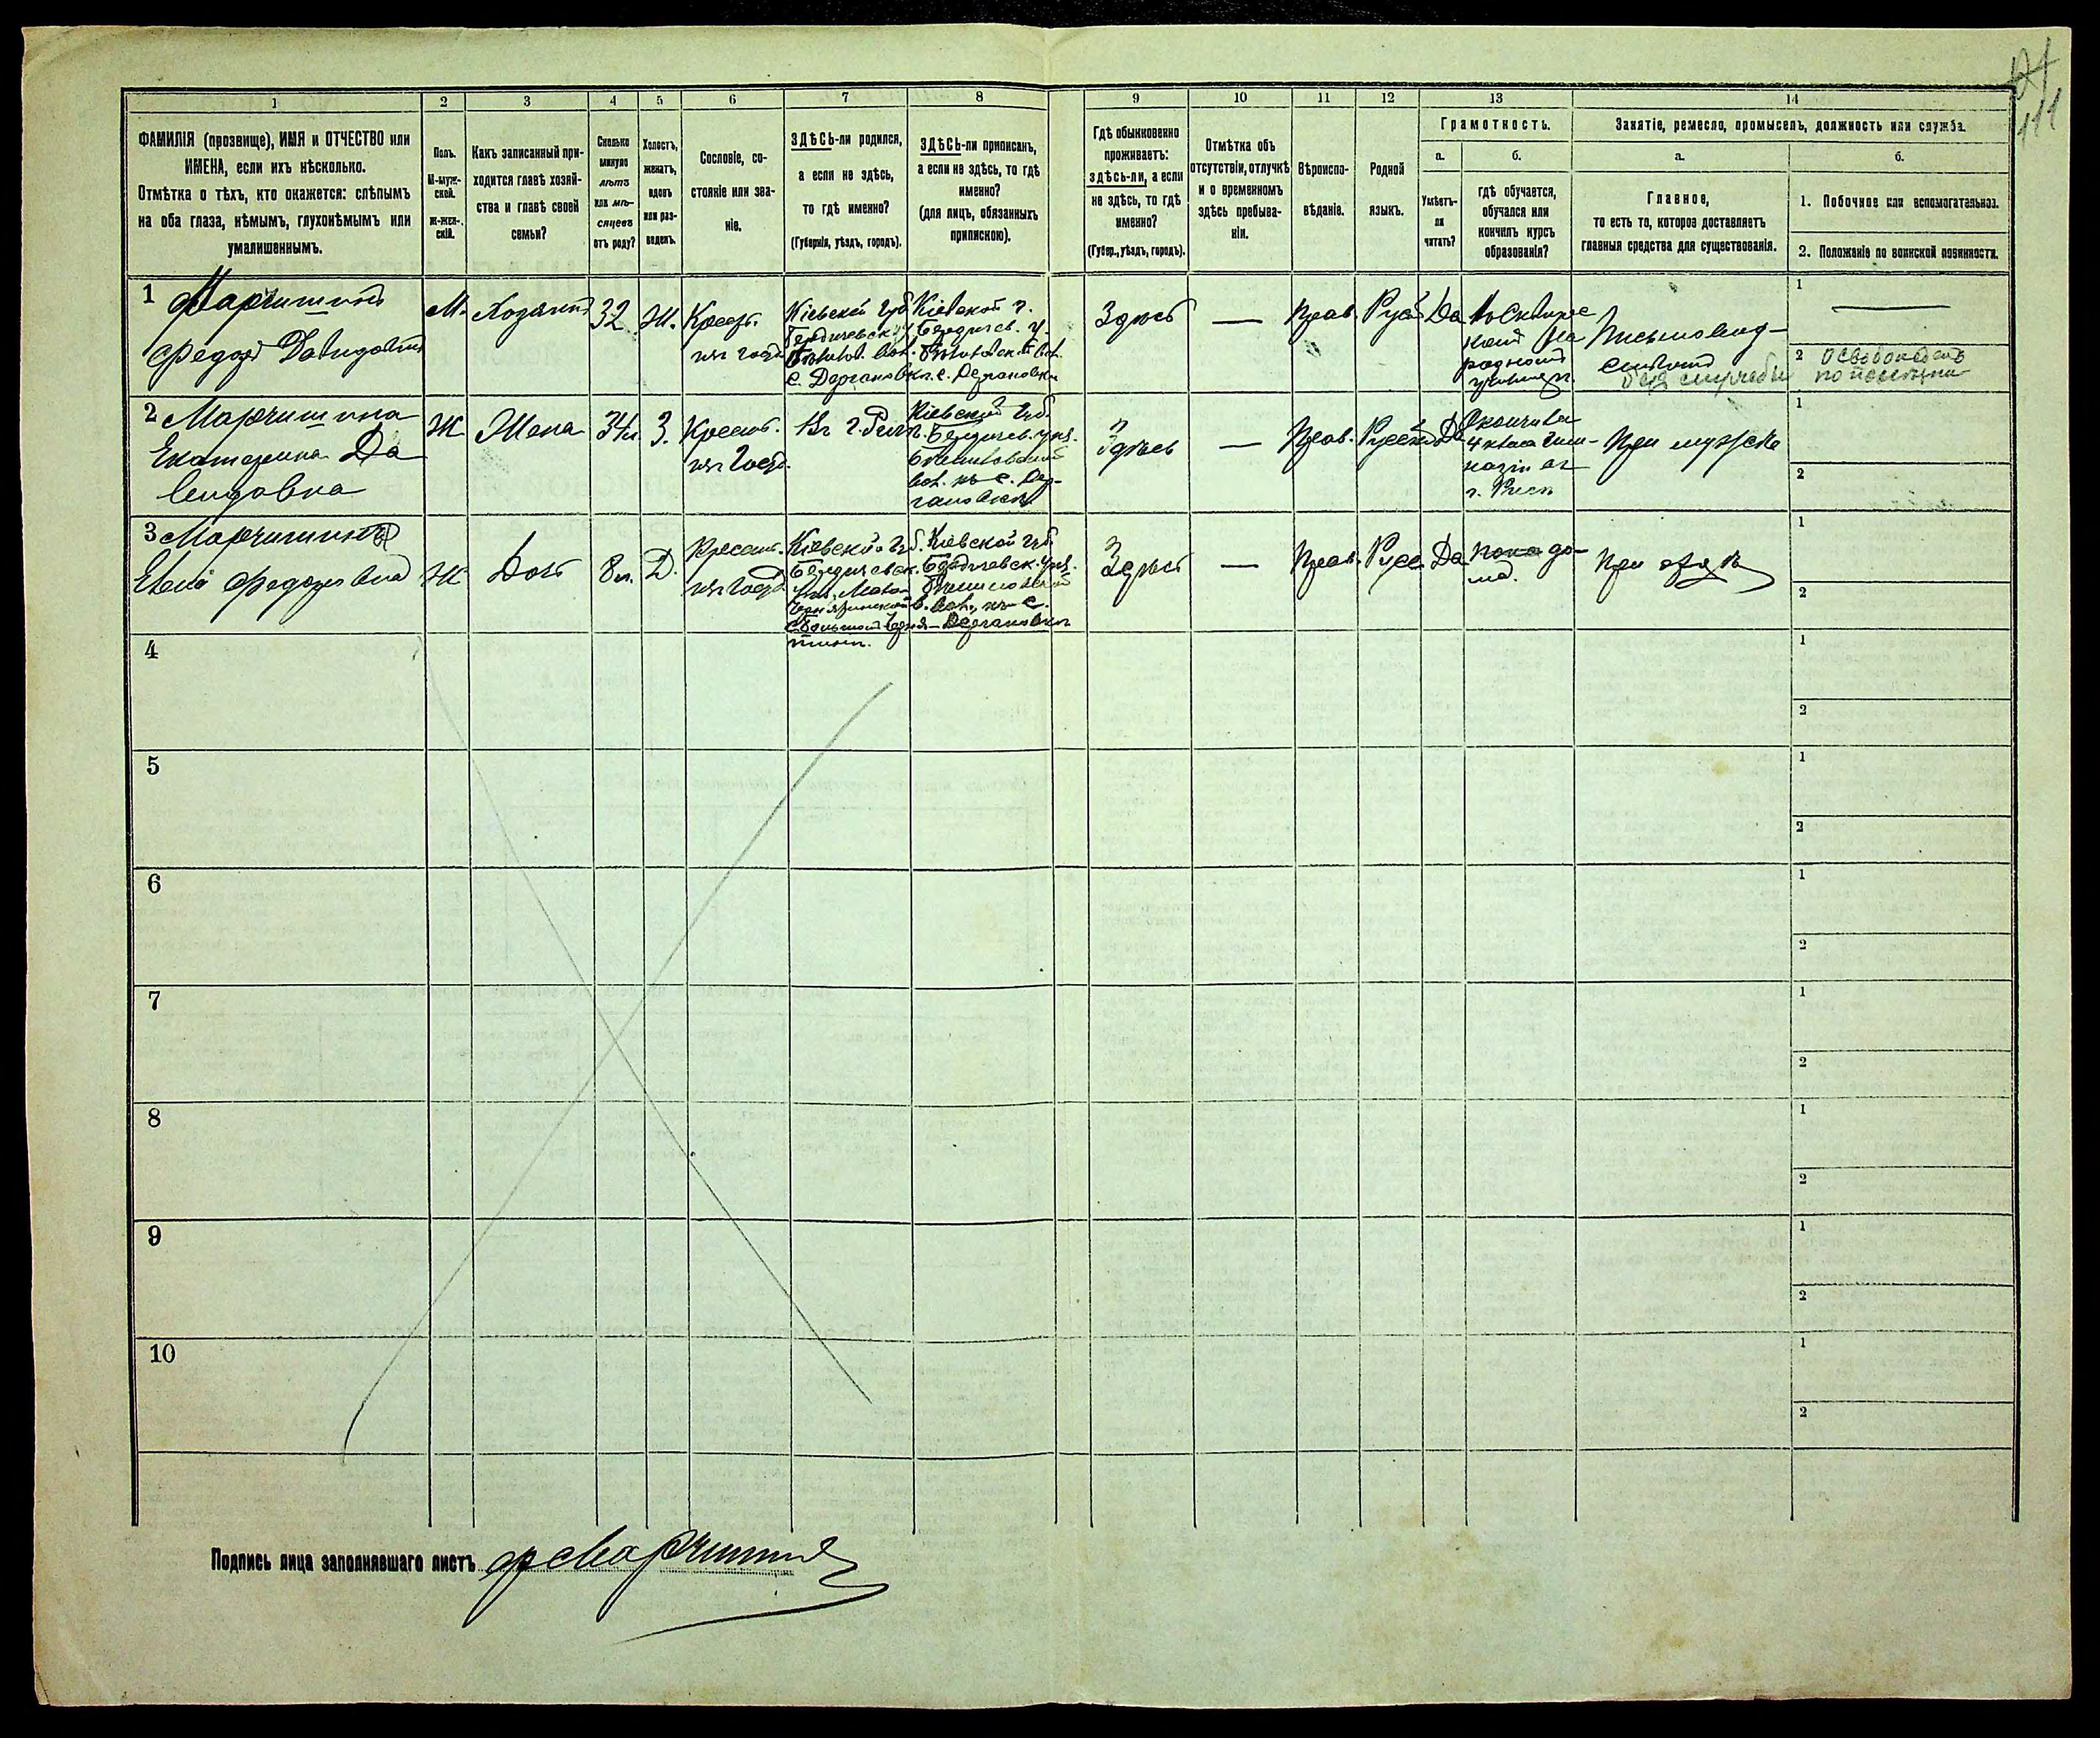 121
111
1 2 3 4 5 6 7 8 9 10 11 12 13 14
ФАМИЛІЯ (прозвище), ИМЯ и ОТЧЕСТВО или
ИМЕНА, если ихъ нѣсколько.
Отмѣтка о тѣхъ, кто окажется: слѣпымъ
на оба глаза, нѣмымъ, глухонѣмымъ или
умалишеннымъ.
Полъ.
М-муж-
ской.
Ж-жен-
скій.
Какъ записанный при-
ходится главѣ хозяй-
ства и главѣ своей
семьи?
Сколько
минуло
лѣтъ
или мѣ-
сяцевъ
отъ роду?
Холостъ,
женатъ,
вдовъ
или раз-
веденъ.
Сословіе, со-
стояніе или зва-
ніе.
ЗДѢСЬ-ли родился,
а если не здѣсь,
то гдѣ именно?
(Губернія, уѣздъ, городъ).
ЗДѢСЬ-ли приписанъ,
а если не здѣсь, то гдѣ
именно?
(для лицъ, обязанныхъ
припискою).
Гдѣ обыкновенно
проживаетъ:
здѣсь-ли, а если
не здѣсь, то гдѣ
именно?
(Губер., уѣздъ, городъ).
Отмѣтка объ
отсутствіи, отлучкѣ
и о временномъ
здѣсь пребыва-
ніи.
Вѣроиспо-
вѣданіе.
Родной
языкъ.
Грамотность.
а.
Умѣетъ-
ли
читать?
б.
гдѣ обучается,
обучался или
кончилъ курсъ
образованія?
Занятіе, ремесло, промыселъ, должность или служба.
а.
Главное,
то есть то, которое доставляетъ
главныя средства для существованія.
б.
1. Побочное или вспомогательное.
2. Положеніе по воинской повинности.
1 Марчишинъ
Федоръ Давидовичъ
М.
Хозяинъ
32
Ж.
Крест.
Кіевской губ.
Бердичевск. у.
с. Дергановкѣ
Кіевской г.
Бердичев. у.
с. Дергановки
Здѣсь
—
Прав.
Рус.
Да
народномъ
училищѣ.
Письмовод-
1 —
2 Освобожденъ
2 Марчишина
Екатерина Да
видовна
Ж
Жена
34 л.
З.
Крест.
Кіевской губ.
Бердичев. уѣз.
вол. въ с. Дер-
гановкѣ
Здѣсь
—
Прав.
Русск.
Да
Окончила
4 класа гим-
назіи въ
При мужѣ
1
2
3 Марчишина
Евгенія Федоровна
Ж
Дочь
8 л.
Д.
Крест.
Кіевской губ.
Бердичевск.
Кіевской губ.
Бердичевск. уѣз.
вол., въ с.
Дергановкѣ
Здѣсь
—
Прав.
Русс.
Да
пока до-
ма.
При отцѣ
1
2
4
1
2
5
1
2
6
1
2
7
1
2
8
1
2
9
1
2
10
1
2
Подпись лица заполнявшаго листъ Ф Марчишинъ